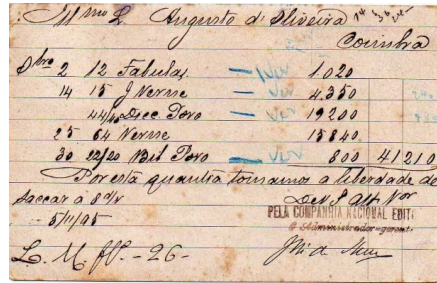 Illmo Sr Augusto d'Oliveira
Coimbra
Dbro 2 12 Fabulas 1.020
14 15 J Vernne 4.350
44/45 Dicc. Povo 19200
25 64 Vernne 15840
30 22/20 Bib Povo 800 41210
Por esta quantia tomamos a liberdade de
saccar a 8 d/v
5/11/95
PELA COMPANHIA NACIONAL EDIT
O Administrador-gerente
L. M. ff. - 26 -